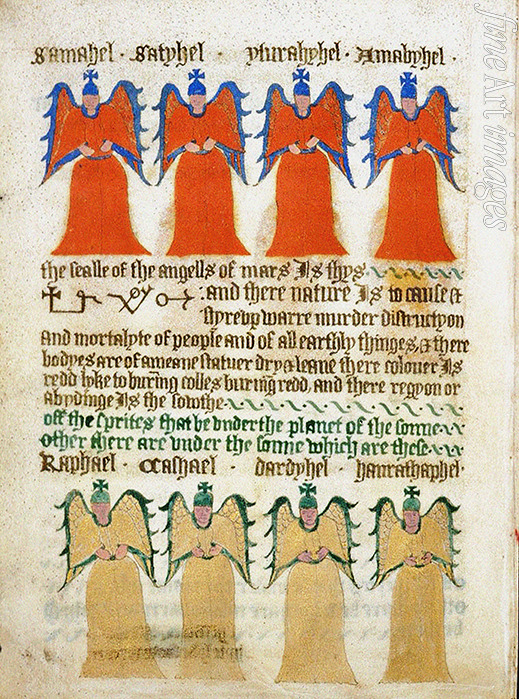 Samahel · Satyhel · yturahyhel · Amabyhel ·
the sealle of the angells of mars Is thys
: and there nature Is to cause &
styrevp warre murder distructyon
and mortalyte of people and of all earthly thinges, & there
bodyes are of a meane statuer dry & leane there colouer Is
redd lyke to buring colles buring redd, and there regyon or
abydinge Is the sowthe
off the sprites that be vnder the planet of the sonne
other there are vnder the sonne which are these
Raphael · Cashael · dardyhel · hanrathaphel ·
FineArtImages